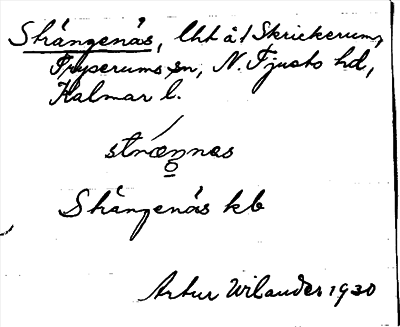 Skångenäs, lht å 1 Skrickerum,
Fryserums sn, N. Tjusts hd,
Kalmar l.
stræŋnas
Skångenäs kb
Artur Wilander 1930